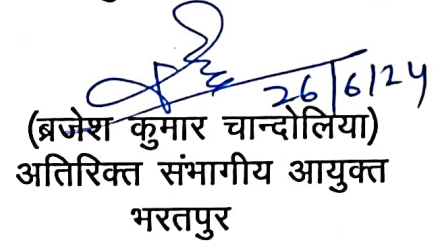 26/6/24
(ब्रजेश कुमार चान्दोलिया)
अतिरिक्त संभागीय आयुक्त
भरतपुर